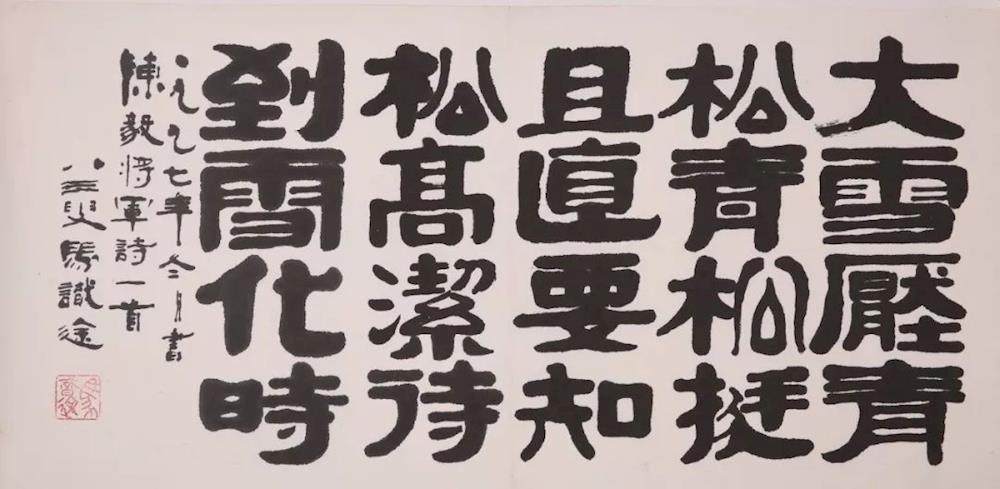 大雪壓青
松青松挺
且直要知
松髙潔待
到雪化時
一九九七年冬月書
陳毅將軍詩一首
八三叟馬識途